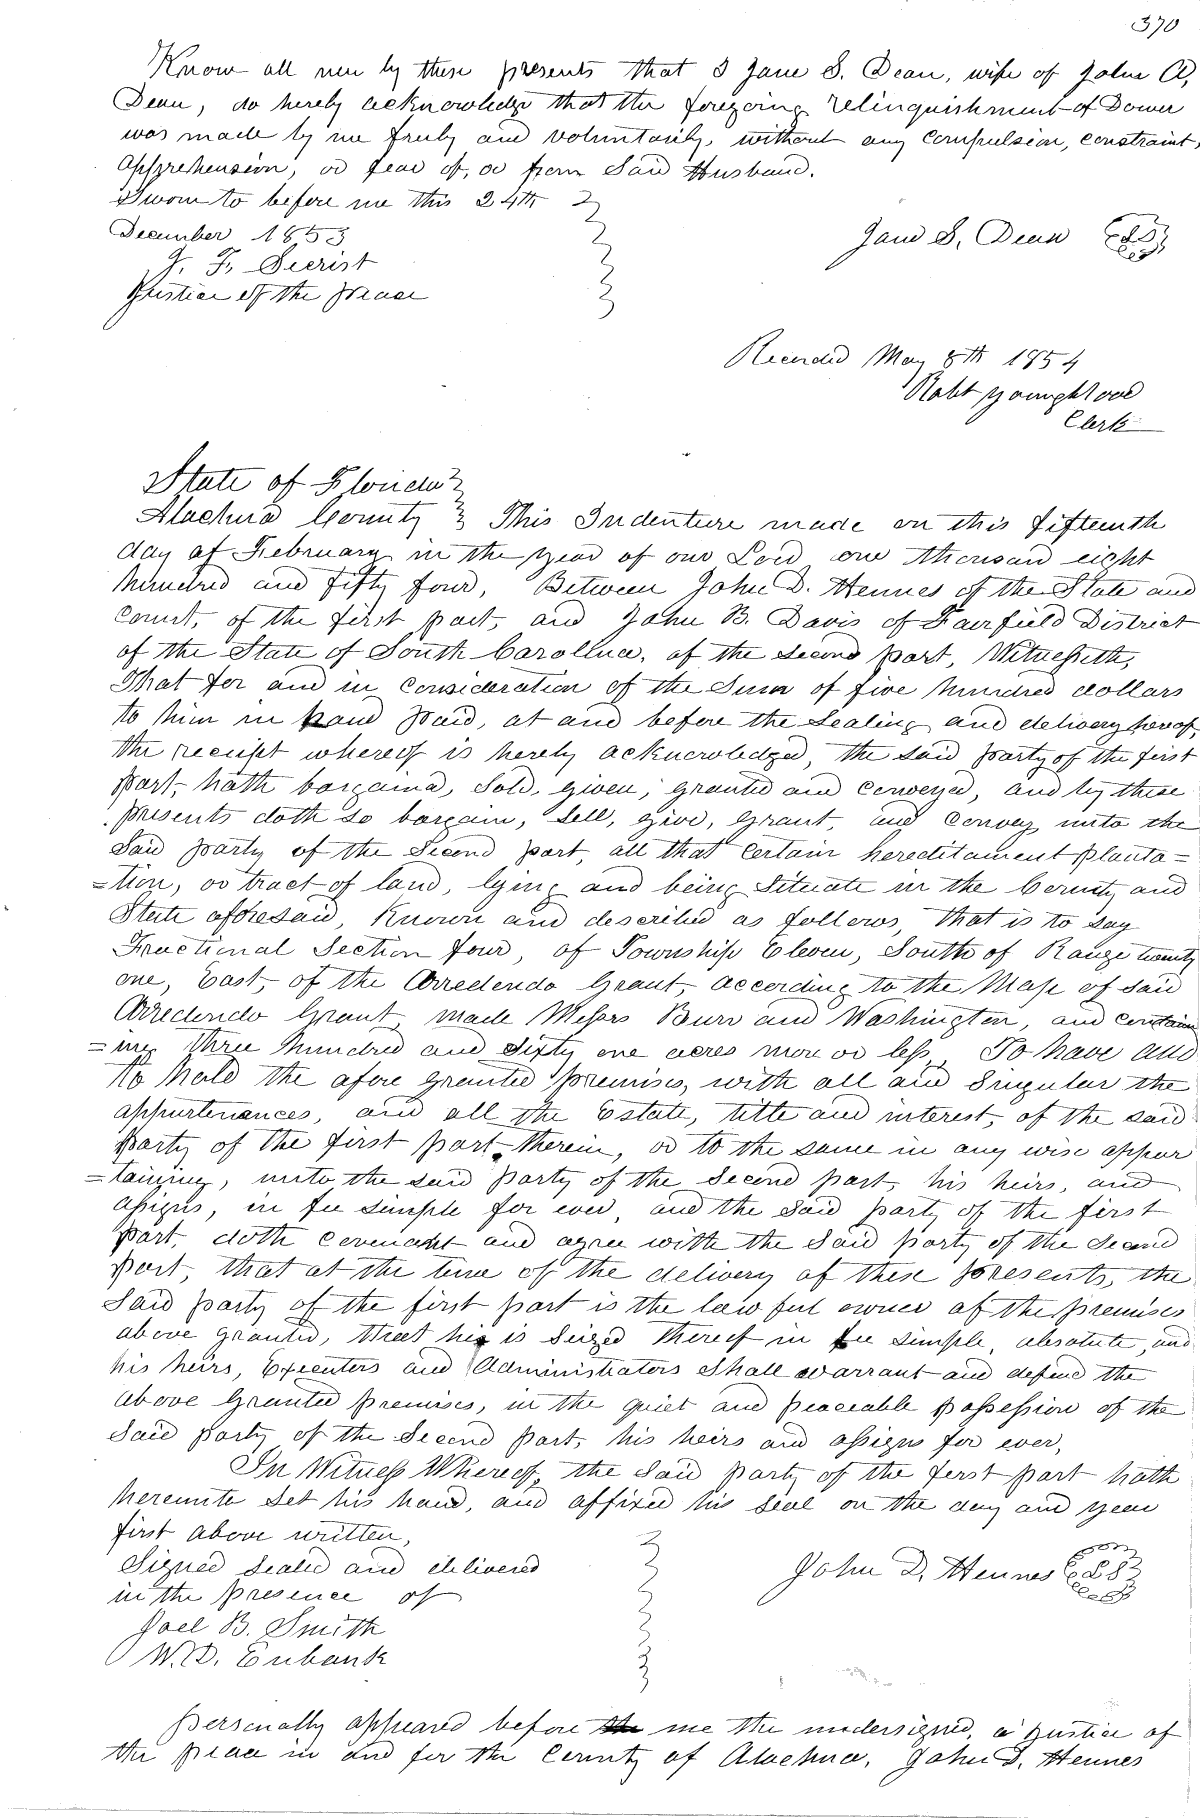 370
Know all men by these presents that I Jane S. Dean, wife of John A,
Dean, do hereby acknowledge that the foregoing relinquishment of Dower
was made by me freely and voluntarily, without any compulsion, constraint,
apprehension, or fear of, or from Said Husband.
Sworn to before me this 24th
December 1853
Jane S, Dean LS
J. F, Secrist
Justice of the peace
Recorded May 8th 1854
Robt Youngblood
Clerk
State of Florida
Alachua County } This Indenture made on this fifteenth
day of February in the year of our Lord one thousand eight
hundred and fifty four, Between John D. Hennes of the State and
Count, of the first part, and John B. Davis of Fairfield District
of the State of South Carolina, of the Second part, Witnesseth,
That for and in consideration of the Sum of five hundred dollars
to him in hand paid, at and before the Sealing and delivery hereof,
the receipt whereof is hereby acknowledged, the said party of the first
part, hath bargained, Sold, given, granted and conveyed, and by these
presents doth so bargain, Sell, give, grant, and convey unto the
Said party of the Second part, all that certain hereditament planta=
=tion, or tract of land, lying and being Situate in the County and
State aforesaid, Known and described as follows, that is to say
Fractional Section four, of Township Eleven, South of Range twenty
one, East, of the Arredondo Grant, according to the Map of said
Arredondo Grant made Messrs Burr and Washington, and contain
=ing three hundred and sixty one acres more or less, To have and
to hold the afore granted premises, with all and Singular the
appurtenances, and all the Estate, title and interest, of the said
party of the first part therein, or to the same in any wise apper
=taining, unto the said party of the Second part, his heirs, and
assigns, in fee simple for ever, and the Said party of the first
part, doth covenant and agree with the Said party of the Second
part, that at the time of the delivery of these presents, the
Said party of the first part is the lawful owner of the premises
above granted, that he is Seized thereof in fee simple, absolute, and
his heirs, Executers and Administrators Shall warrant and defend the
above Granted premises, in the quiet and peaceable possession of the
Said party of the Second part, his heirs and assigns for ever,
In Witness Whereof, the Said party of the first part hath
hereunto Set his hand, and affixed his seal on the day and year
first above written,
Signed sealed and delivered
in the presence of
John D, Hennes LS
Joel B. Smith
W. D. Eubank
Personally appeared before me the undersigned, a Justice of
the peace in and for the County of Alachua, John D, Hennes